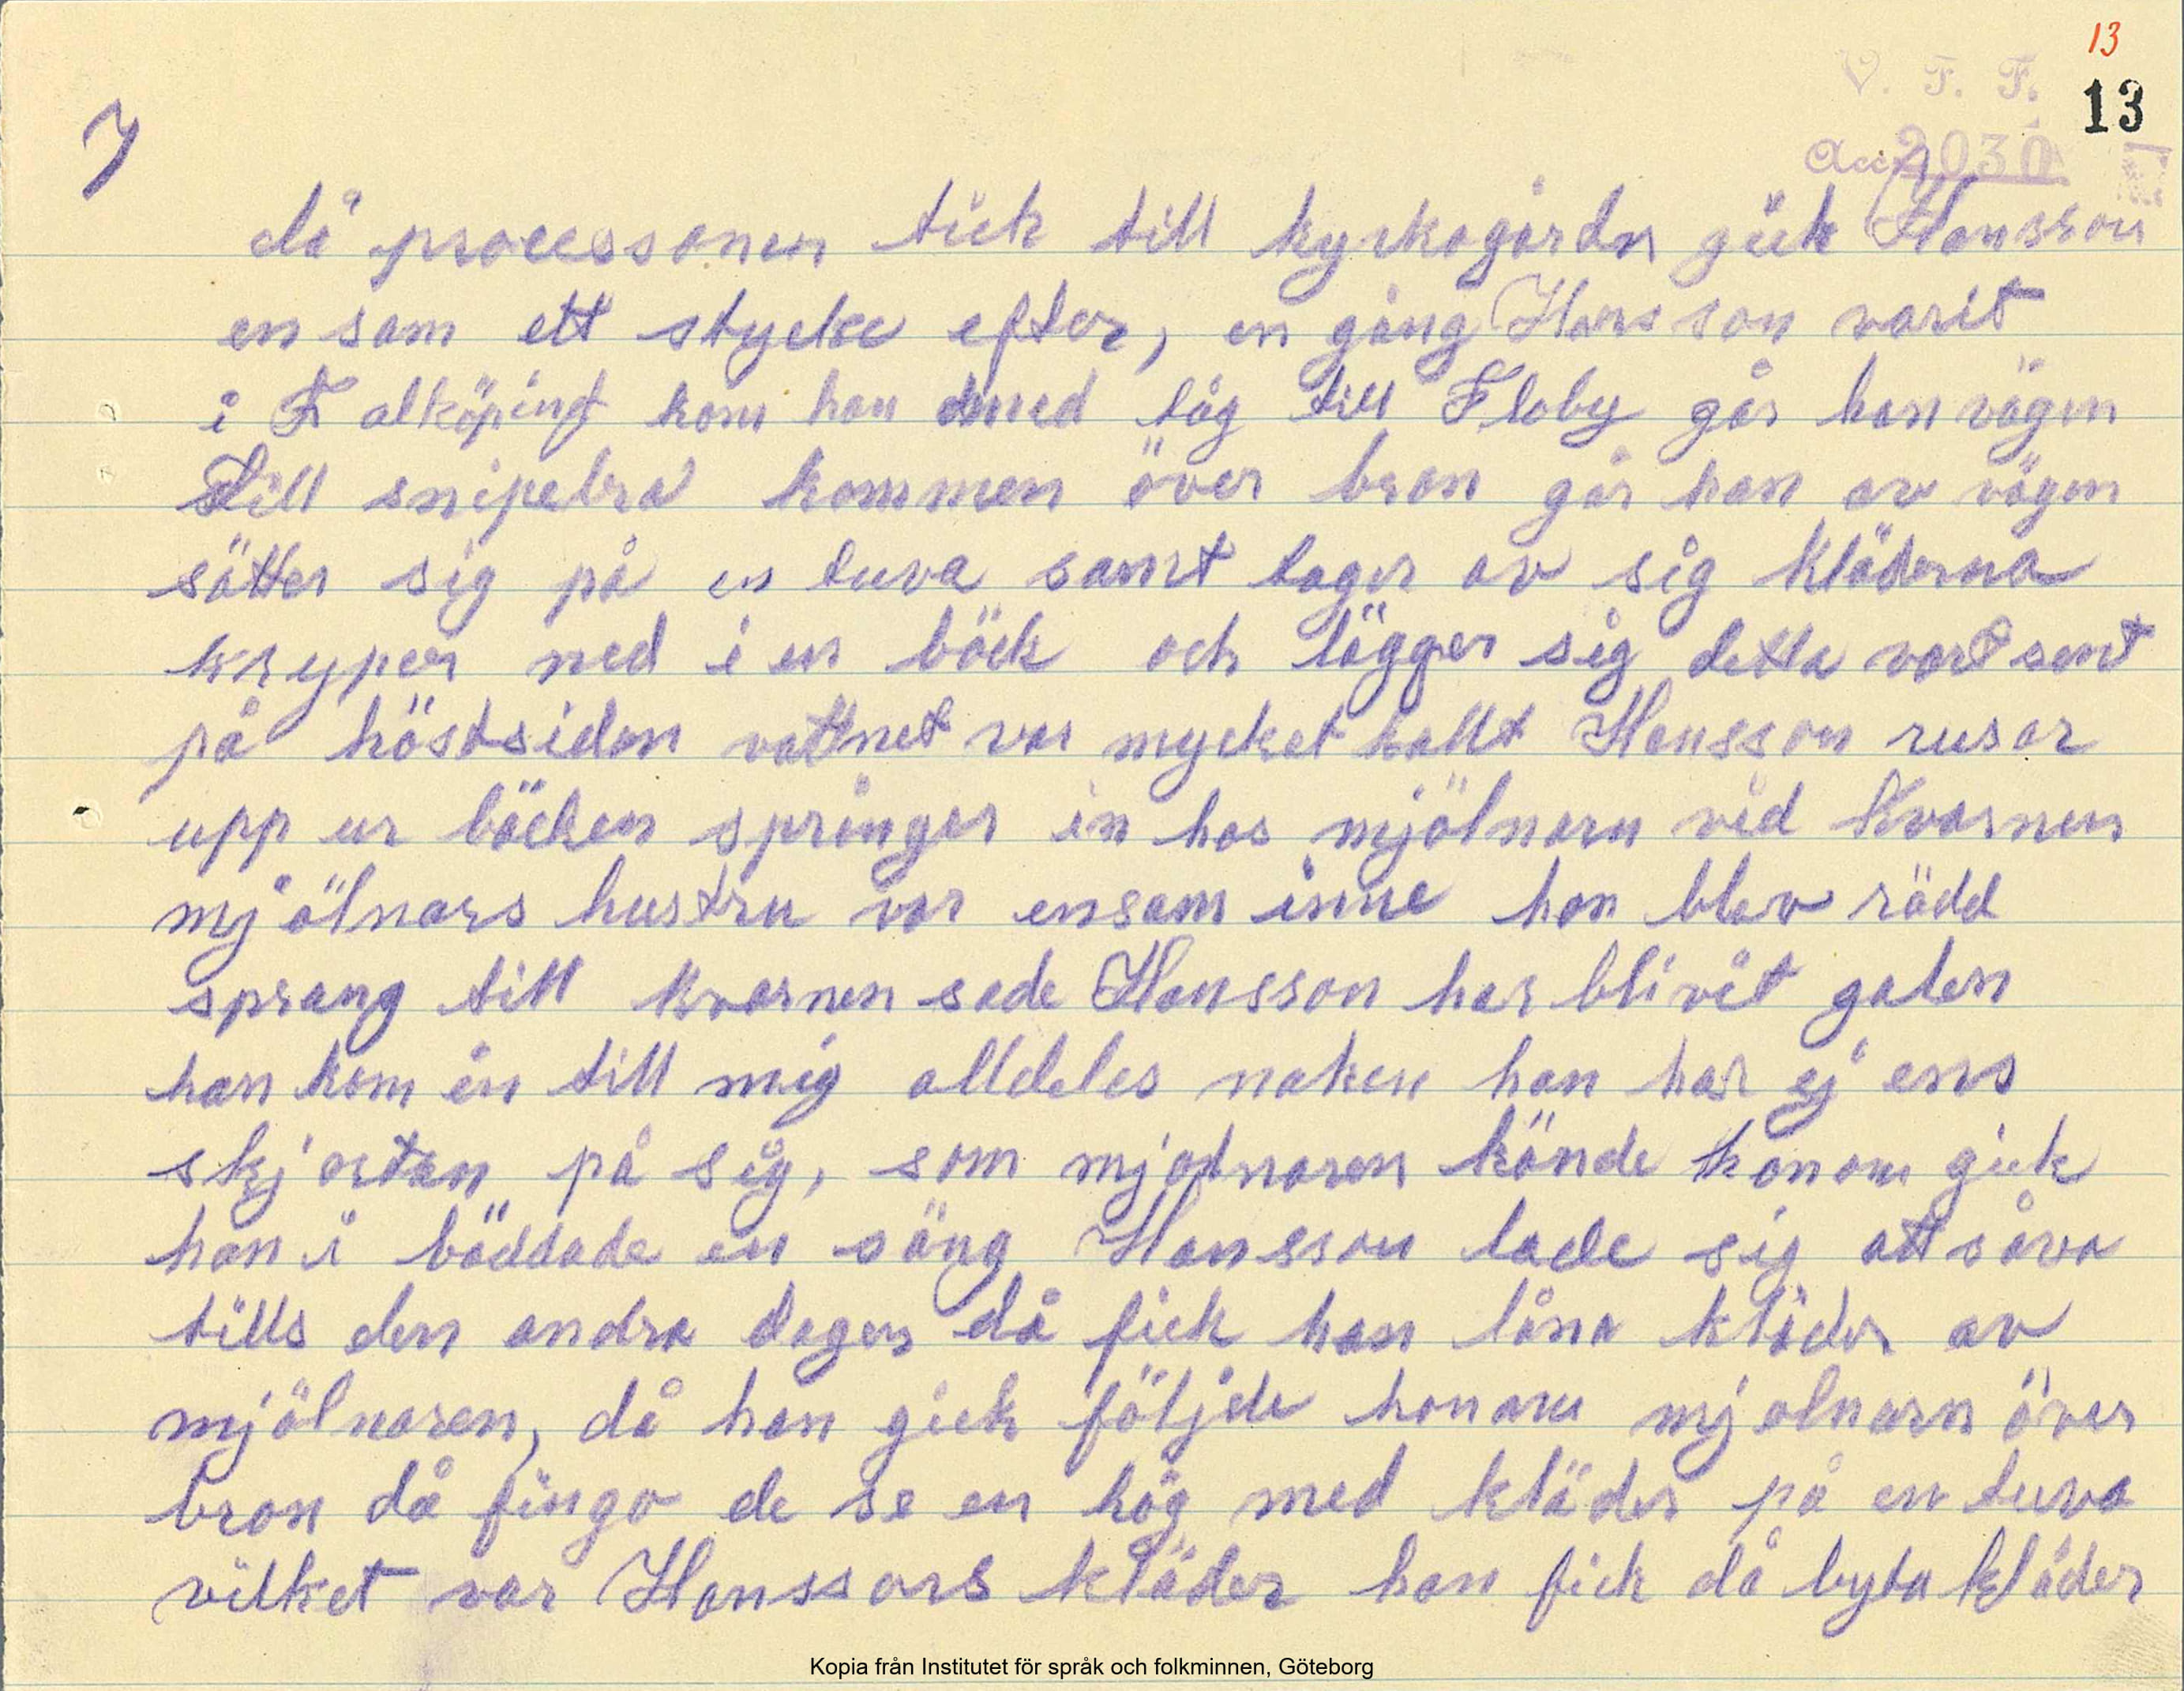 13
V. F. F.
13
7
Acc 2030
då processonen tick till kyrkogårdn gick Hansson
ensam ett stycke efter, en gång Hansson varit
i Falköping kom han med tåg till Floby går han vägen
till snipebro kommen över bron går han av vägen
sätter sig på en tuva samt tager av sig kläderna
kryper ned i en bäck och lägger sig detta vart sent
på höstsidan vattnet var mycket kallt Hansson rusar
upp ur bäcken springer in hos mjölnarn vid Kvarnen
mjölnars hustru var ensam inne hon blev rädd
sprang till kvarnen sade Hansson har blivit galen
han kom in till mig alldeles naken han har ej ens
skjortan på sig, som mjölnaren kände honom gick
han i bäddade en säng Hansson lade sig att såva
tills den andra dagen då fick han låna kläder av
mjölnaren, då han gick följde honom mjolnarn över
bron då fingo de se en hög med kläder på en tuva
vilket var Hanssons kläder han fick då byta kläder
Kopia från Institutet för språk och folkminnen, Göteborg